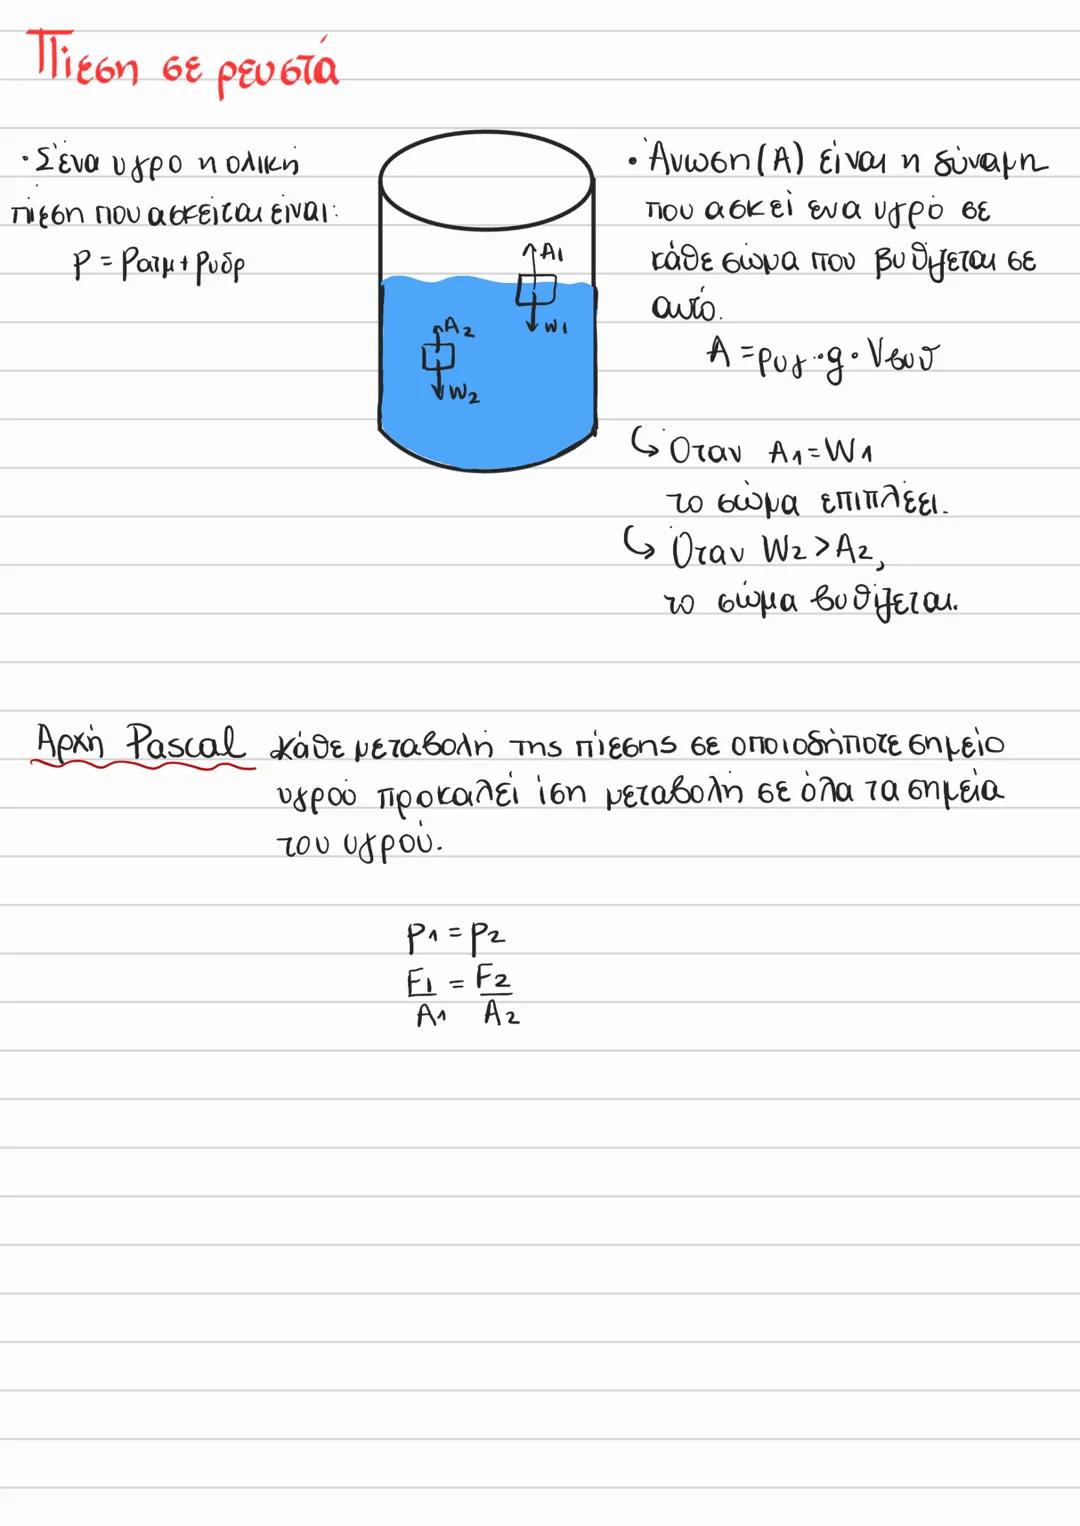 Πίεση σε ρευστά
• Σ'ένα υγρο η ολική
πίεση που ασκείται είναι:
P = Pατμ + Pυδρ
A1
W1
A2
W2
• Άνωση (A) είναι η δύναμη
που ασκεί ενα υγρό σε
κάθε σώμα που βυθίζεται σε
αυτό.
A = ρυγ · g · Vβυθ
↳ Όταν A1 = W1
το σώμα επιπλέει.
↳ Όταν W2 > A2,
το σώμα βυθίζεται.
Αρχή Pascal κάθε μεταβολή της πίεσης σε οποιοδήποτε σημείο
υγρού προκαλεί ίση μεταβολή σε όλα τα σημεία
του υγρού.
P1 = P2
F1 = F2
A1 A2